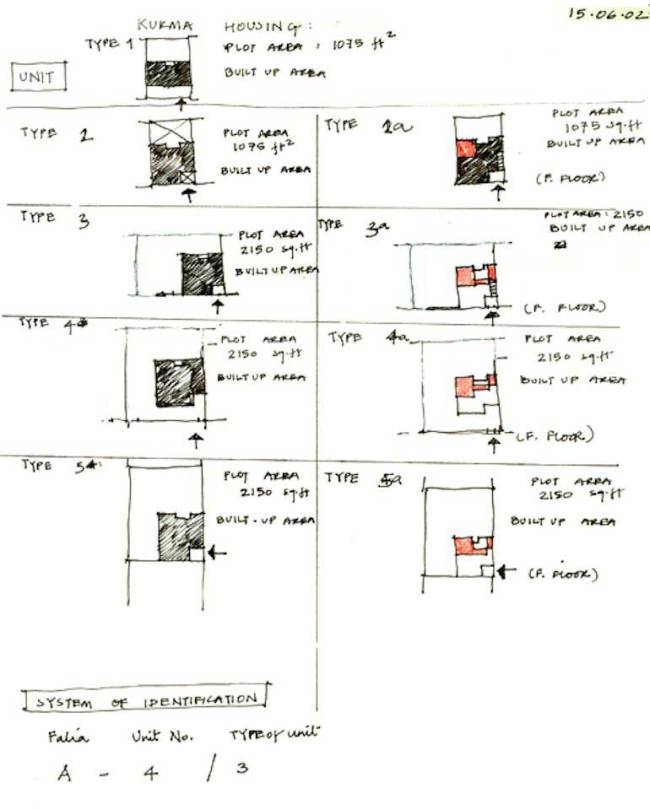 15.06.02
KURMA HOUSING:
TYPE 1
PLOT AREA : 1075 ft²
UNIT
BUILT UP AREA
TYPE 2
PLOT AREA
1075 ft²
BUILT UP AREA
TYPE 2a
PLOT AREA
1075 sq.ft
BUILT UP AREA
(F. FLOOR)
TYPE 3
PLOT AREA
2150 sq.ft
BUILT UP AREA
TYPE 3a
PLOT AREA : 2150
BUILT UP AREA
(F. FLOOR)
TYPE 4
PLOT AREA
2150 sq.ft
BUILT UP AREA
TYPE 4a
PLOT AREA
2150 sq.ft
BUILT UP AREA
(F. FLOOR)
TYPE 5
PLOT AREA
2150 sq.ft
BUILT-UP AREA
TYPE 5a
PLOT AREA
2150 sq.ft
BUILT UP AREA
(F. FLOOR)
SYSTEM OF IDENTIFICATION
Falia Unit No. TYPE of unit
A - 4 / 3